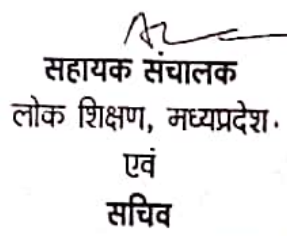 सहायक संचालक
लोक शिक्षण, मध्यप्रदेश.
एवं
सचिव